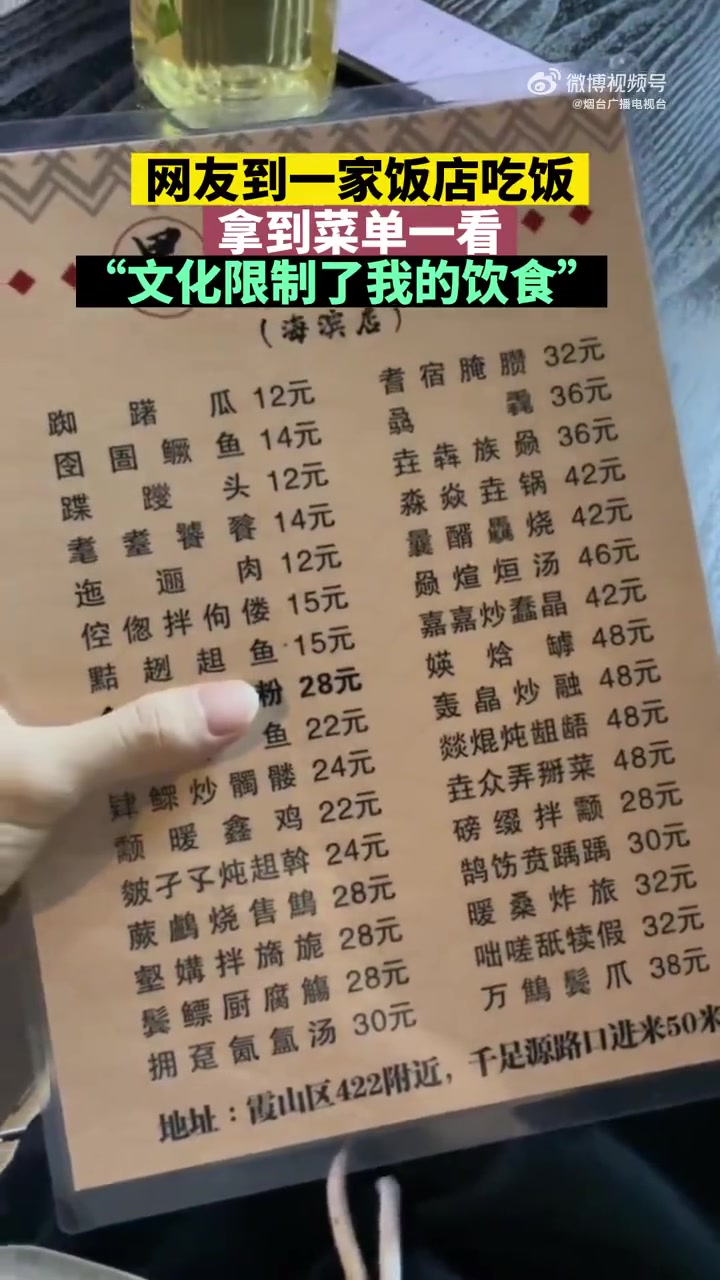 微博视频号
@烟台广播电视台
网友到一家饭店吃饭
拿到菜单一看
“文化限制了我的饮食”
（海滨店）
踟躇瓜 12元
囹圄鳜鱼 14元
蹀躞头 12元
耄耋饕餮 14元
迤逦肉 12元
倥偬拌佝偻 15元
黠趔趄鱼 15元
粉 28元
鱼 22元
肄鳏炒髑髅 24元
颥暖鑫鸡 22元
皴孑孓炖趄斡 24元
烧售 28元
拌旖旎 28元
鬓鳔厨腐觞 28元
拥趸氤氲汤 30元
耆宿腌臜 32元
骉毳 36元
垚犇族赑 36元
淼焱垚锅 42元
曩醑轟烧 42元
赑煊烜汤 46元
嘉嘉炒蠢晶 42元
罅 48元
轰晶炒融 48元
燚焜炖龃龉 48元
垚众弄掰菜 48元
磅缀拌颥 28元
鹄饬贲踽踽 30元
暖桑炸旅 32元
咄嗟舐犊假 32元
万鬓爪 38元
地址：霞山区422附近，千足源路口进来50米